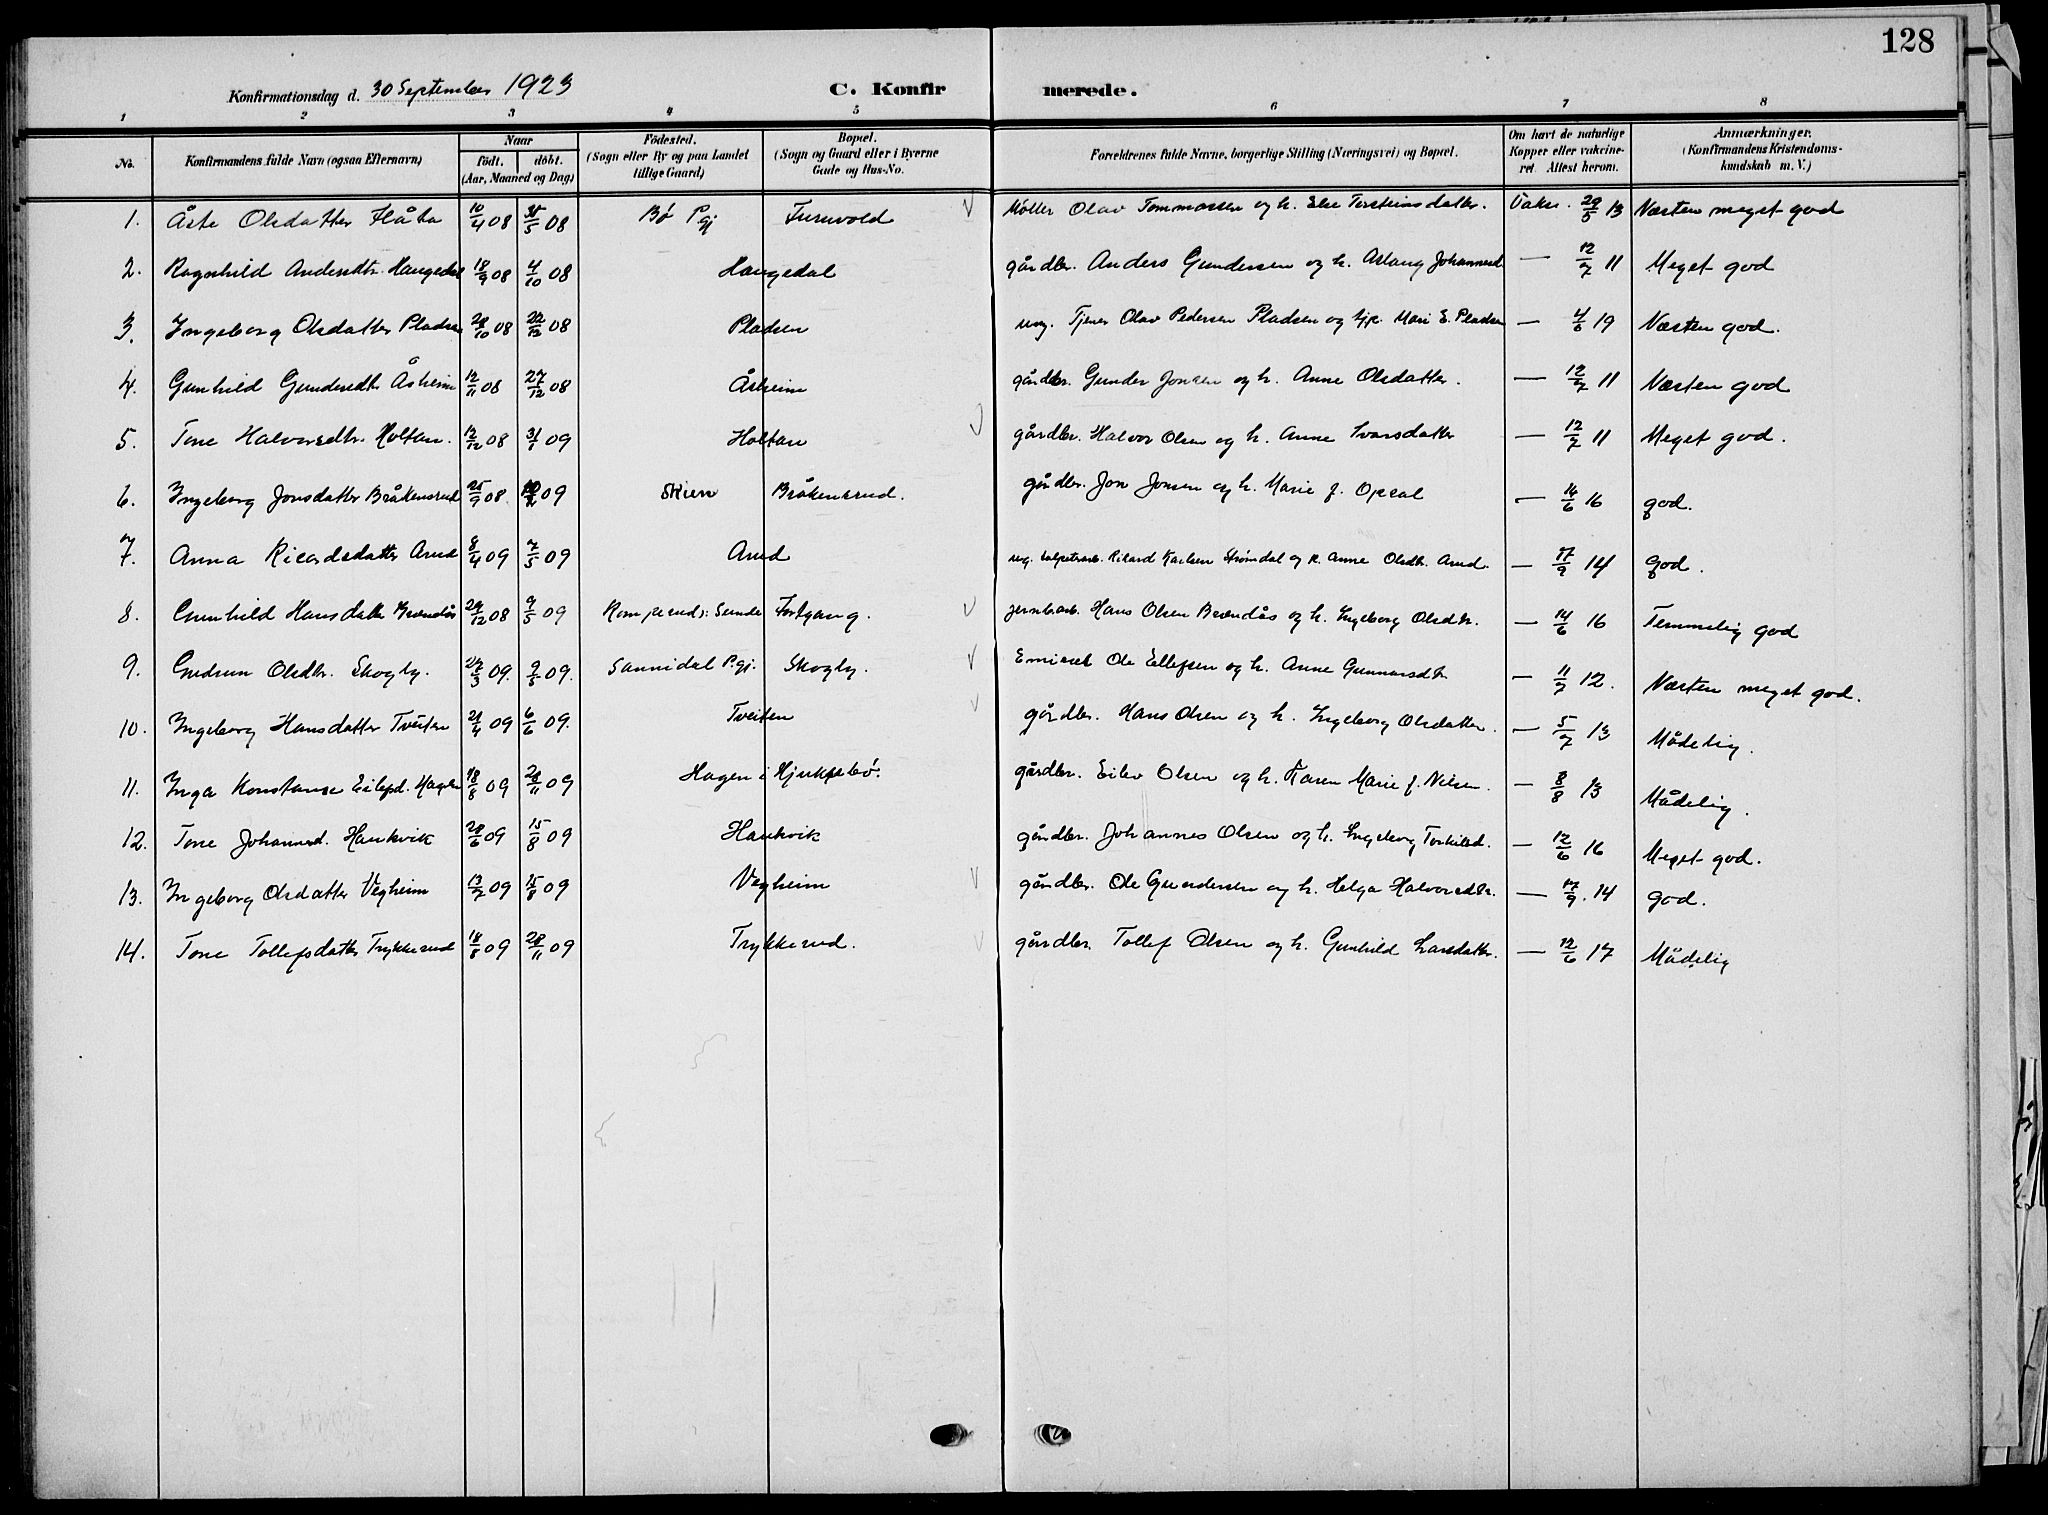 128
Konfirmationsdag d. 30 September 1923 C. Konfirmerede.
1 2 3 4 5 6 7 8
No. Konfirmandens fulde Navn (ogsaa Efternavn) Naar födt. döbt. (Aar, Maaned og Dag) Födested. (Sogn eller By og paa Landet tillige Gaard) Bopæl. (Sogn og Gaard eller i Byerne Gade og Hus-No. Forældrenes fulde Navne, borgerlige Stilling (Næringsvei) og Bopæl. Om havt de naturlige Kopper eller vakcineret. Attest herom. Anmærkninger. (Konfirmandens Kristendomskundskab m. V.)
1. Åste Olsdatter Håta 10/4 08 30/5 08 Bø Pgj Furuvold Møller Olav Tommassen og h. Else Torsteinsdatter. Vaks. 29/5 13 Næsten meget god
2. Ragnhild Andersdtr. Haugedal 18/9 08 4/10 08 Haugedal gårdbr. Anders Gundersen og h. Aslaug Johannesd — 12/7 11 Meget god
3. Ingeborg Olsdatter Pladsen 28/10 08 22/12 08 Pladsen ung. Tjener Olav Pedersen Pladsen og Marie E. Pladsen — 4/6 19 Næsten god.
4. Gunhild Gundersdtr Åsheim 12/11 08 27/12 08 Åsheim gårdbr. Gunder Jonsen og h. Anne Olsdatter. — 12/7 11 Næsten god
5. Tone Halvorsdtr. Holtan. 12/12 08 31/1 09 Holtan gårdbr. Halvor Olsen og h. Anne Ivarsdatter — 12/7 11 Meget god.
6. Ingeborg Jonsdatter Bråkensrud 25/9 08. 09 Skien Bråkensrud. gårdbr. Jon Jonsen og h. Marie f. Opsal — 14/6 16 god.
7. Anna Ricardsdatter Arud 8/4 09 7/5 09 Arud ug. Rikard Karlsen Strømdal og p. Anne Olsdtr. Arud. — 17/9 14 god.
8. Gunhild Hansdatter Brændås 29/12 08 9/5 09 Komperud i Sunde Fortgang. jernbarb. Hans Olsen Brændås og h. Ingeborg Olsdtr. — 14/6 16 Temmelig god
9. Gudrun Olsdtr. Skogby. 27/3 09. 9/5 09. Sannidal Pgj. Skogby. Emisær Ole Ellefsen og h. Anne Gunnarsdtr — 11/7 12. Næsten meget god.
10. Ingeborg Hansdatter Tveiten 21/4 09 6/6 09. Tveiten gårdbr. Hans Olsen og h. Ingeborg Olsdatter. — 5/7 13 Mådelig.
11. Inga Konstanse Eilefsd. Hagen 18/8 09 28/11 09 Hagen i Hjuksebø. gårdbr. Eilev Olsen og h. Karen Marie f. Nilsen. — 8/8 13 Mådelig.
12. Tone Johannesd. Haukvik 28/6 09 15/8 09 Haukvik gårdbr. Johannes Olsen og h. Ingeborg Torkilsd. — 12/6 16 Meget god.
13. Ingeborg Olsdatter Vegheim 13/7 09 15/8 09 Vegheim gårdbr. Ole Gundersen og h. Helga Halvorsdtr. — 17/9. 14 god.
14. Tone Tollefsdatter Trykkerud 18/8 09 28/11 09 Trykkerud. gårdbr. Tollef Olsen og h. Gunhild Larsdatter. — 12/6 17 Mådelig